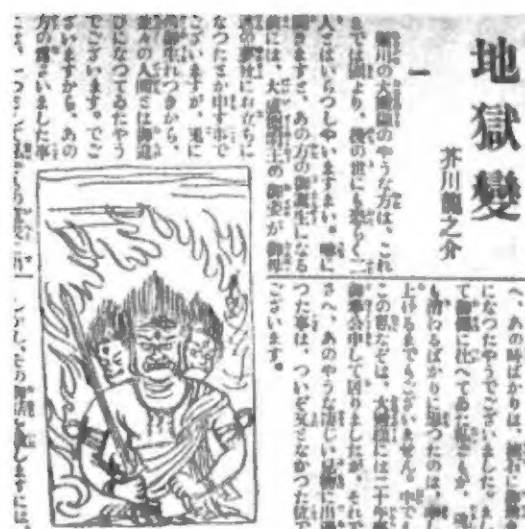 地獄變
芥川龍之介
一
堀川の大殿様のやうな方は、これ
までは固より、後の世にも恐らく二
人とはいらつしやいますまい。噂に
聞きますと、あの方の御誕生になる
前には、大威徳明王の御姿が御母
の夢枕にお立ちに
なつたとか申す事で
ございますが、兎に
角御生れつきから、
並々の人間とは御違
ひになつてゐたやう
でございます。でご
ざいますから、あの
方の爲さいました事
へ、あの時ばかりは、流石に御
になつたやうでございました。ま
て御側に仕へてゐた私どもが、魂
も消えるばかりに思つたのは、申
上げるまでもございません。中で
この私などは、大殿様には二十年
御奉公申して居りましたが、それで
さへ、あのやうな凄じい見物に出遇
つた事は、ついぞ又となかつた位で
ございます。